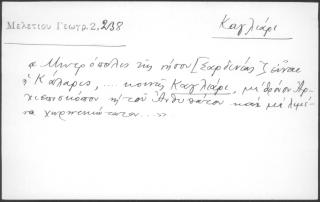 Μελετίου Γεωγρ. 2, 238
Καγλιάρι
« Μητρόπολις τῆς νήσου [Σαρδενίας] εἶναι
ἡ Κάλαρις, .... κοινῶς Καγλιάρι, μὲ θρόνον Ἀρ-
χιεπισκόπου καὶ τοῦ Ἀνθυπάτου καὶ μὲ λιμέ-
να χωρητικώτατον ... »